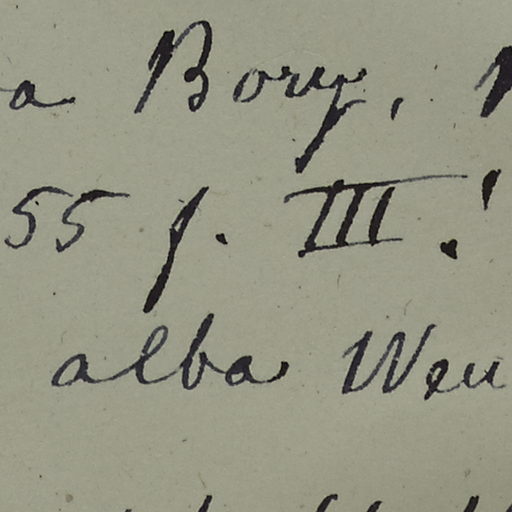 a Bory,
55 f. III!
alba Wen